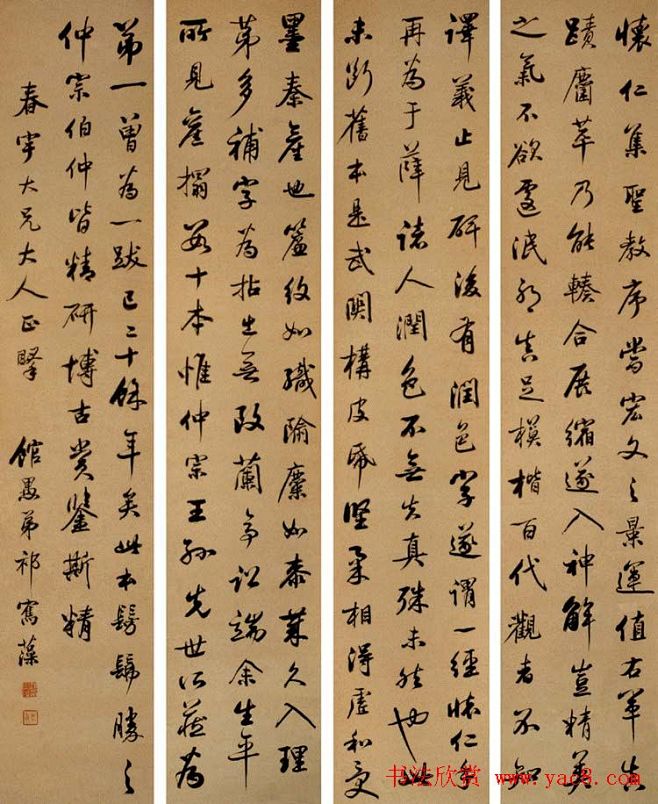 懷仁集聖教序當宏文之景運值右軍真
蹟麕萃乃能輳合展縮遂入神解豈精英
之氣不欲遽泯邪真足模楷百代觀者不知
譯義止見碑後有潤色字遂謂一經懷仁手
再為于薛諸人潤色不無失真殊未然也此
未斷舊本是武關構皮紙堅柔相得虛和受
墨秦產也簾紋如織隃麋如桼業久入理
苐多補字為拈出無改蘭亭訟端余生平
所見舊搨數十本惟仲宗王孫先世所藏為
苐一曾為一跋已二十餘年矣此本髣髴勝之
仲宗伯仲皆精研博古賞鑒斯精
春宇大兄大人正擥 館愚弟祁寯藻
书法欣赏 www.yac8.com